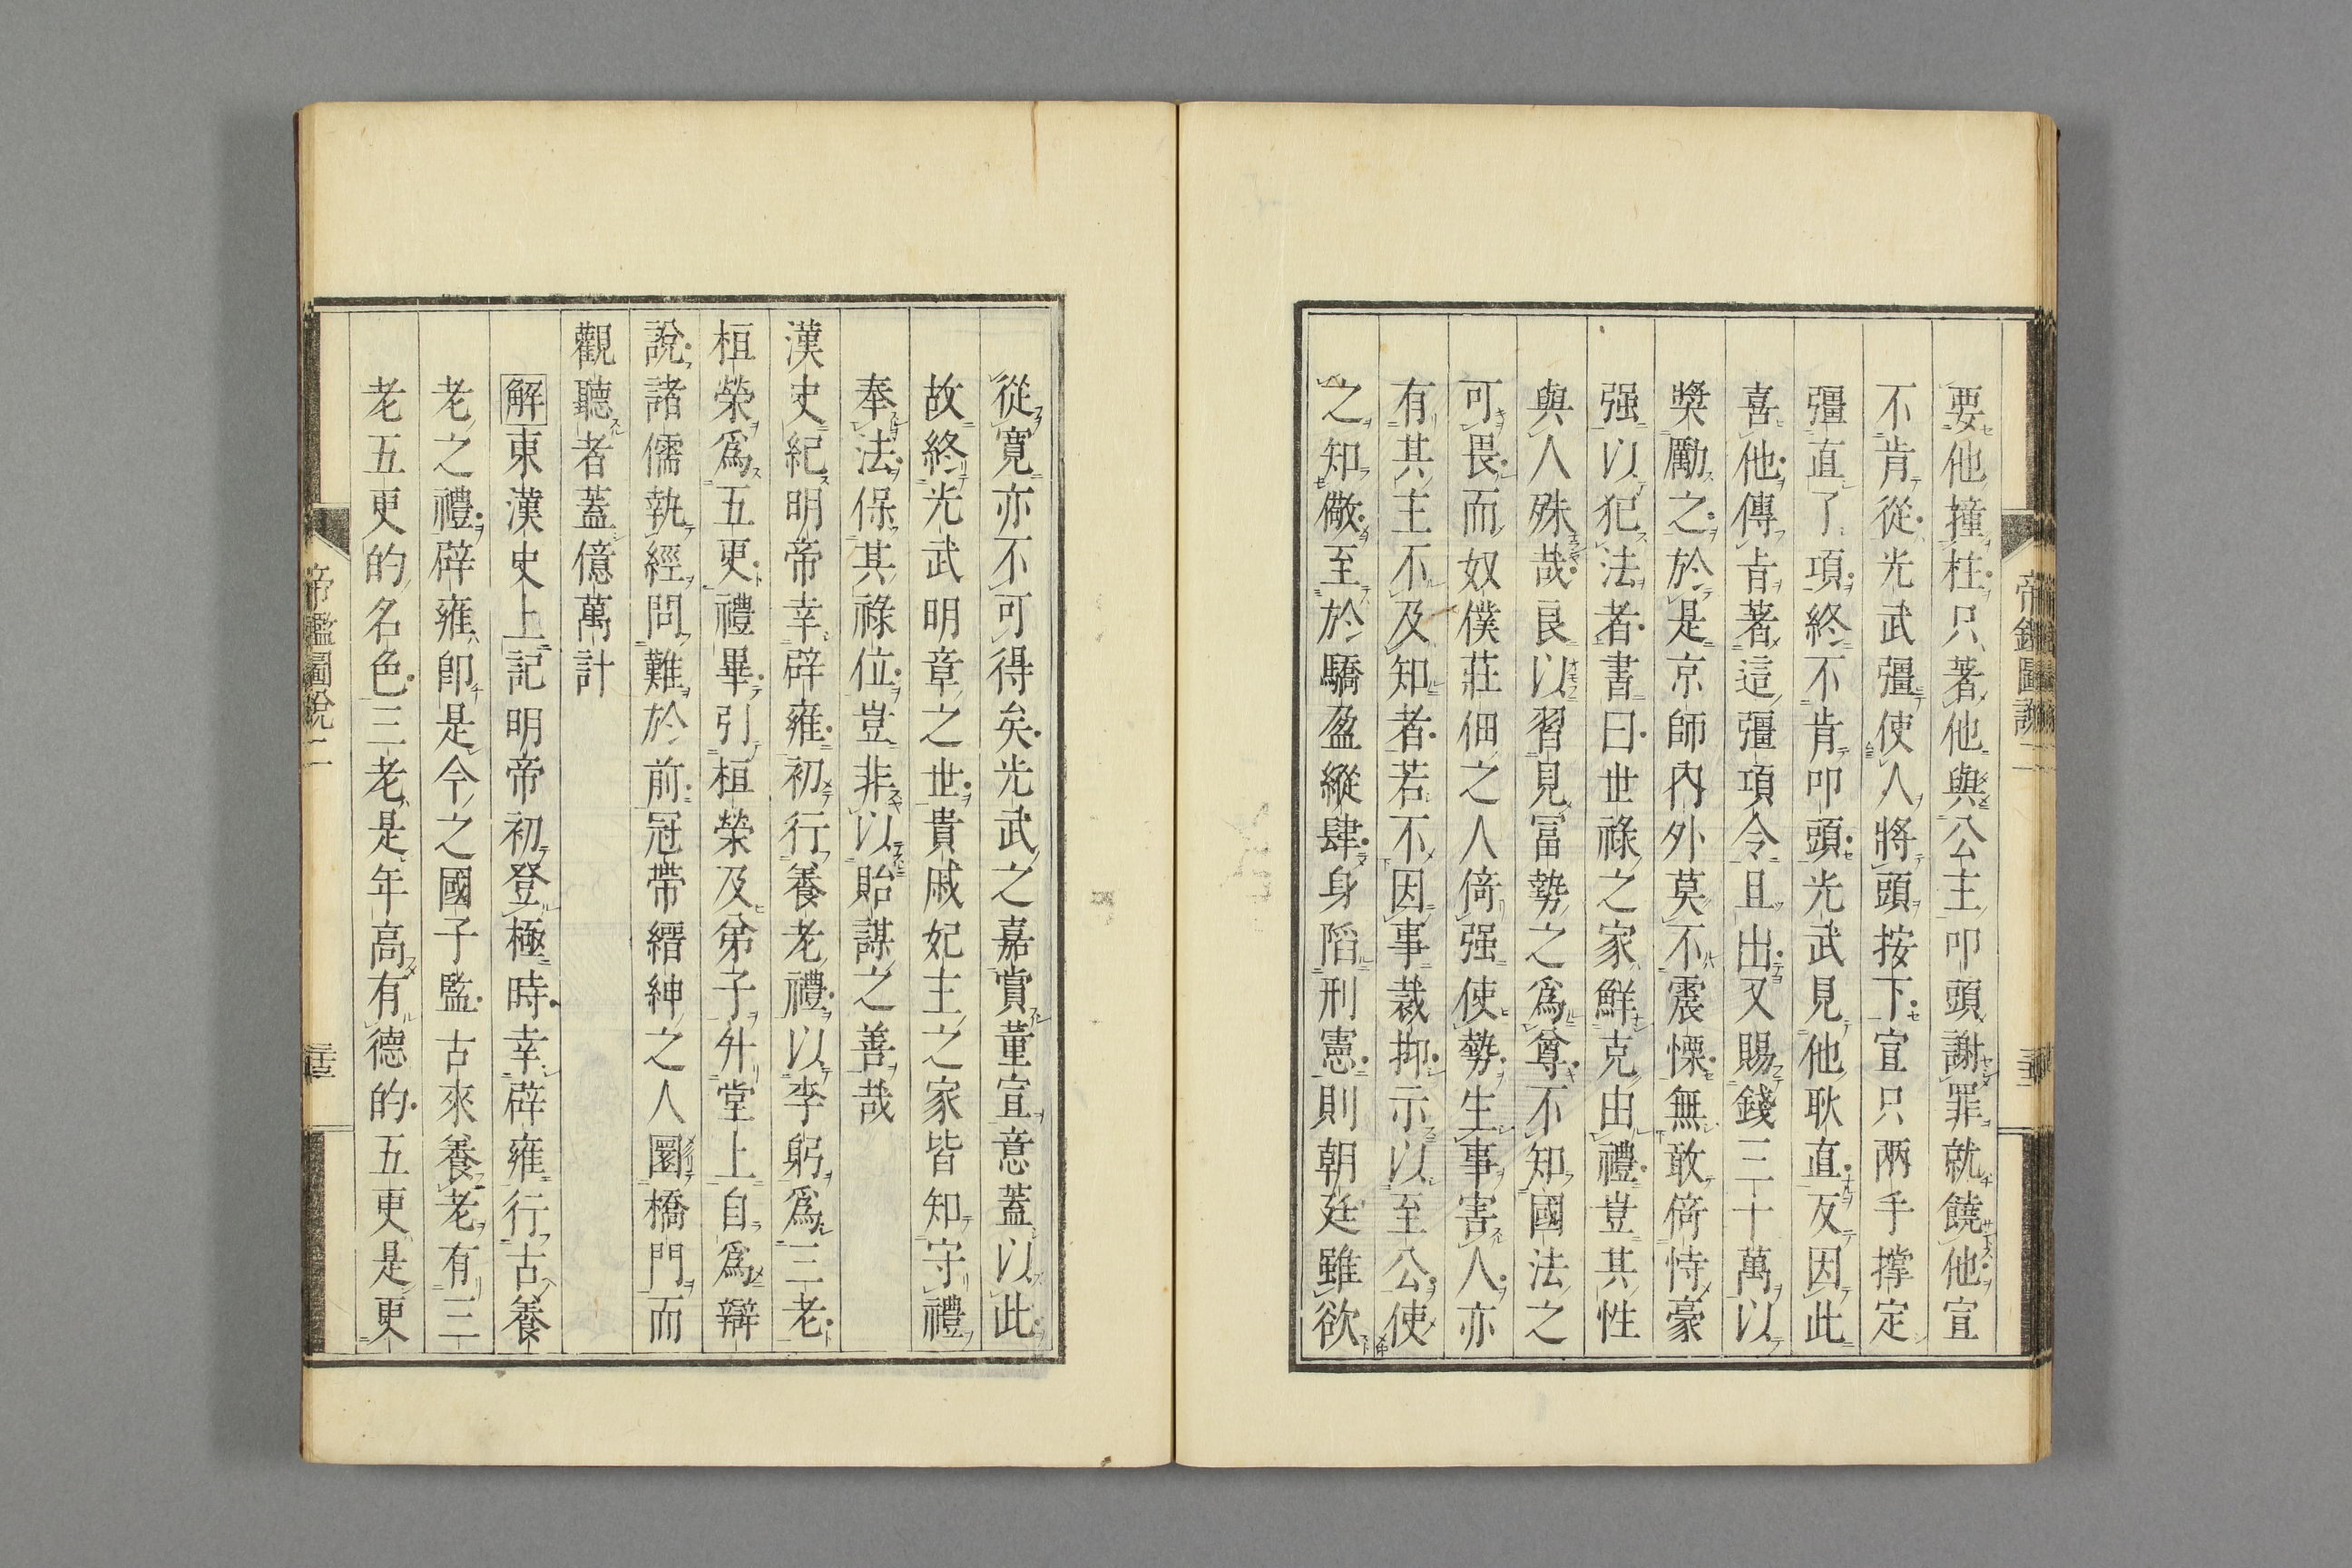 要他撞柱只著他與公主叩頭謝罪就饒他宣
不肯從光武彊使人將頭按下宣只兩手撐定
彊直了項終不肯叩頭光武見他耿直反因此
喜他傳旨著這彊項令且出又賜錢三十萬以
奬勵之於是京師內外莫不震慄無敢倚恃豪
强以犯法者書曰世祿之家鮮克由禮豈其性
與人殊哉良以習見冨勢之爲尊不知國法之
可畏而奴僕莊佃之人倚强使勢生事害人亦
有其主不及知者若不因事裁抑示以至公使
之知儆至於驕盈縱肆身陷刑憲則朝廷雖欲
從寬亦不可得矣光武之嘉賞董宣意蓋以此
故終光武明章之世貴戚妃主之家皆知守禮
奉法保其祿位豈非以貽謀之善哉
漢史紀明帝幸辟雍初行養老禮以李躬爲三老
桓榮爲五更禮畢引桓榮及弟子升堂上自爲辯
說諸儒執經問難於前冠帶縉紳之人圜橋門而
觀聽者蓋億萬計
解東漢史上記明帝初登極時幸辟雍行古養
老之禮辟雍卽是今之國子監古來養老有三
老五更的名色三老是年高有德的五更是更
帝鑑圖說二